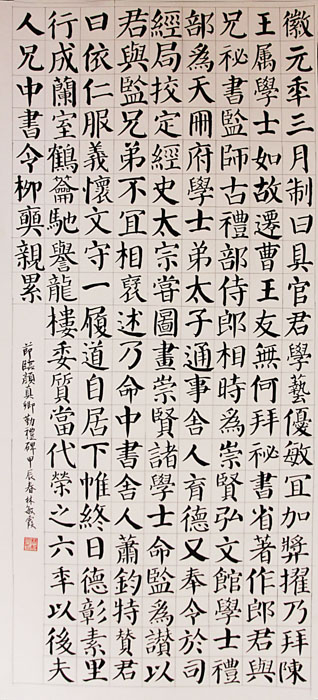 徽元年三月制曰具官君學藝優敏宜加獎擢乃拜陳
王属學士如故遷曹王友無何拜秘書省著作郎君與
兄秘書監師古禮部侍郎相時為崇賢弘文館學士禮
部為天冊府學士弟太子通事舍人育德又奉令於司
經局挍定經史太宗嘗圖畫崇賢諸學士命監為讃以
君與監兄弟不宜相襃述乃命中書舍人蕭鈞特賛君
曰依仁服義懷文守一履道自居下帷終日德彰素里
行成蘭室鶴籥馳譽龍樓委質當代榮之六年以後夫
人兄中書令柳奭親累
節臨顏真卿勤禮碑甲辰春林敏霞